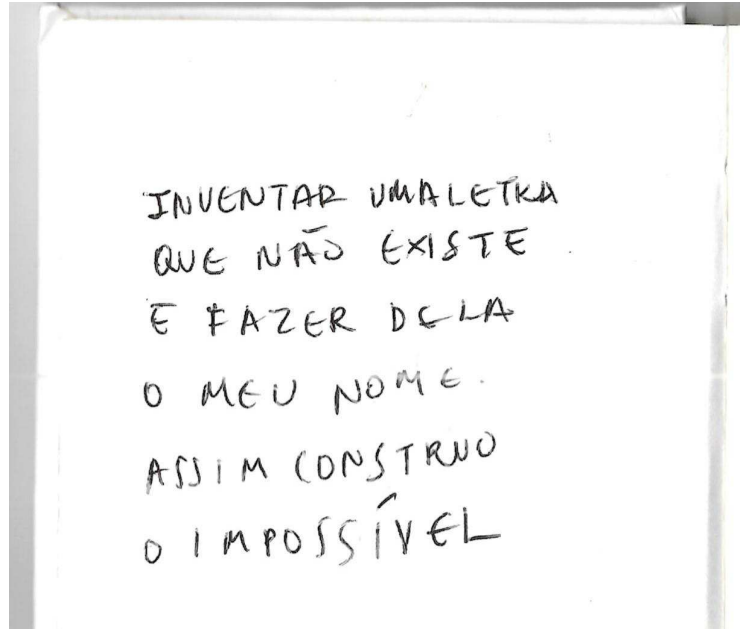 INVENTAR UMA LETRA
QUE NÃO EXISTE
E FAZER DELA
O MEU NOME.
ASSIM CONSTRUO
O IMPOSSÍVEL